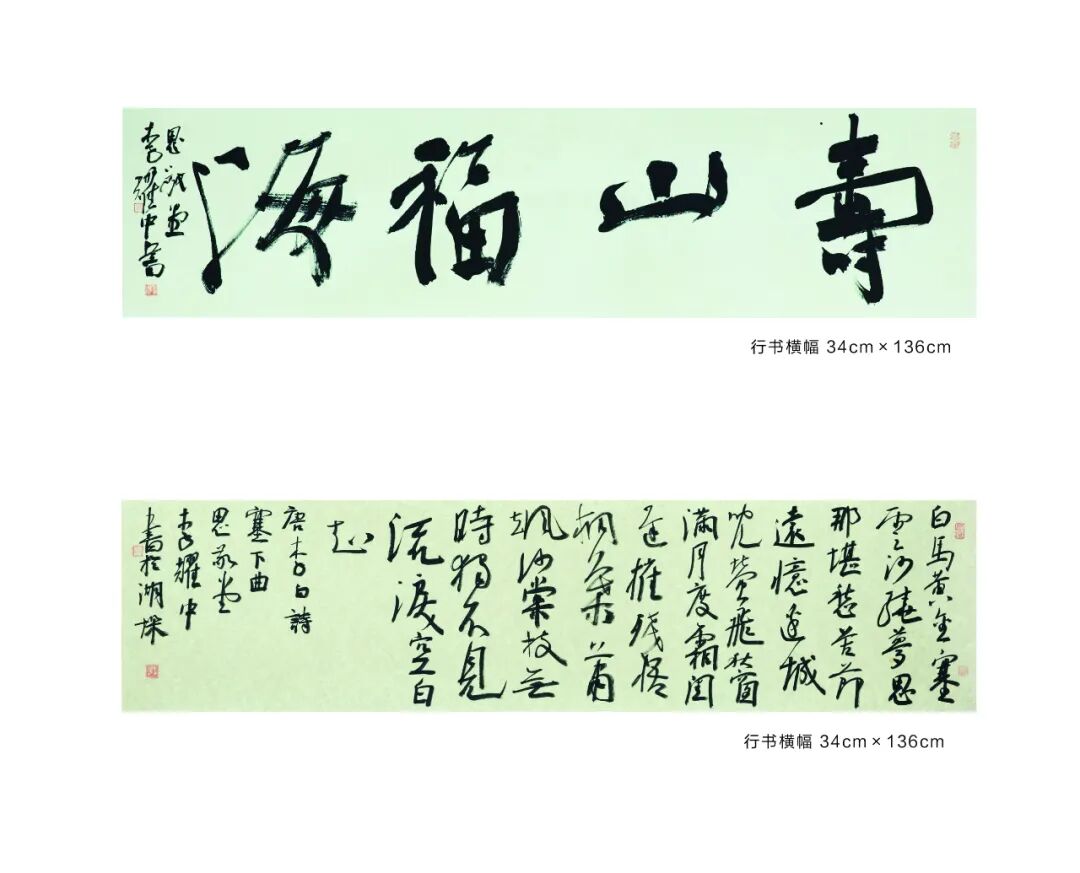 壽山福海
思敬堂
李耀中書
行书横幅 34cm×136cm
白馬黄金塞
雲沙繞夢思
那堪愁苦節
遠憶邊城
兒螢飛秋窗
滿月度霜閨
遲摧殘梧
桐葉蕭
颯沙棠枝無
時獨不見
流淚空自
知
唐李白詩
塞下曲
思敬堂
李耀中
書於湖
行书横幅 34cm×136cm